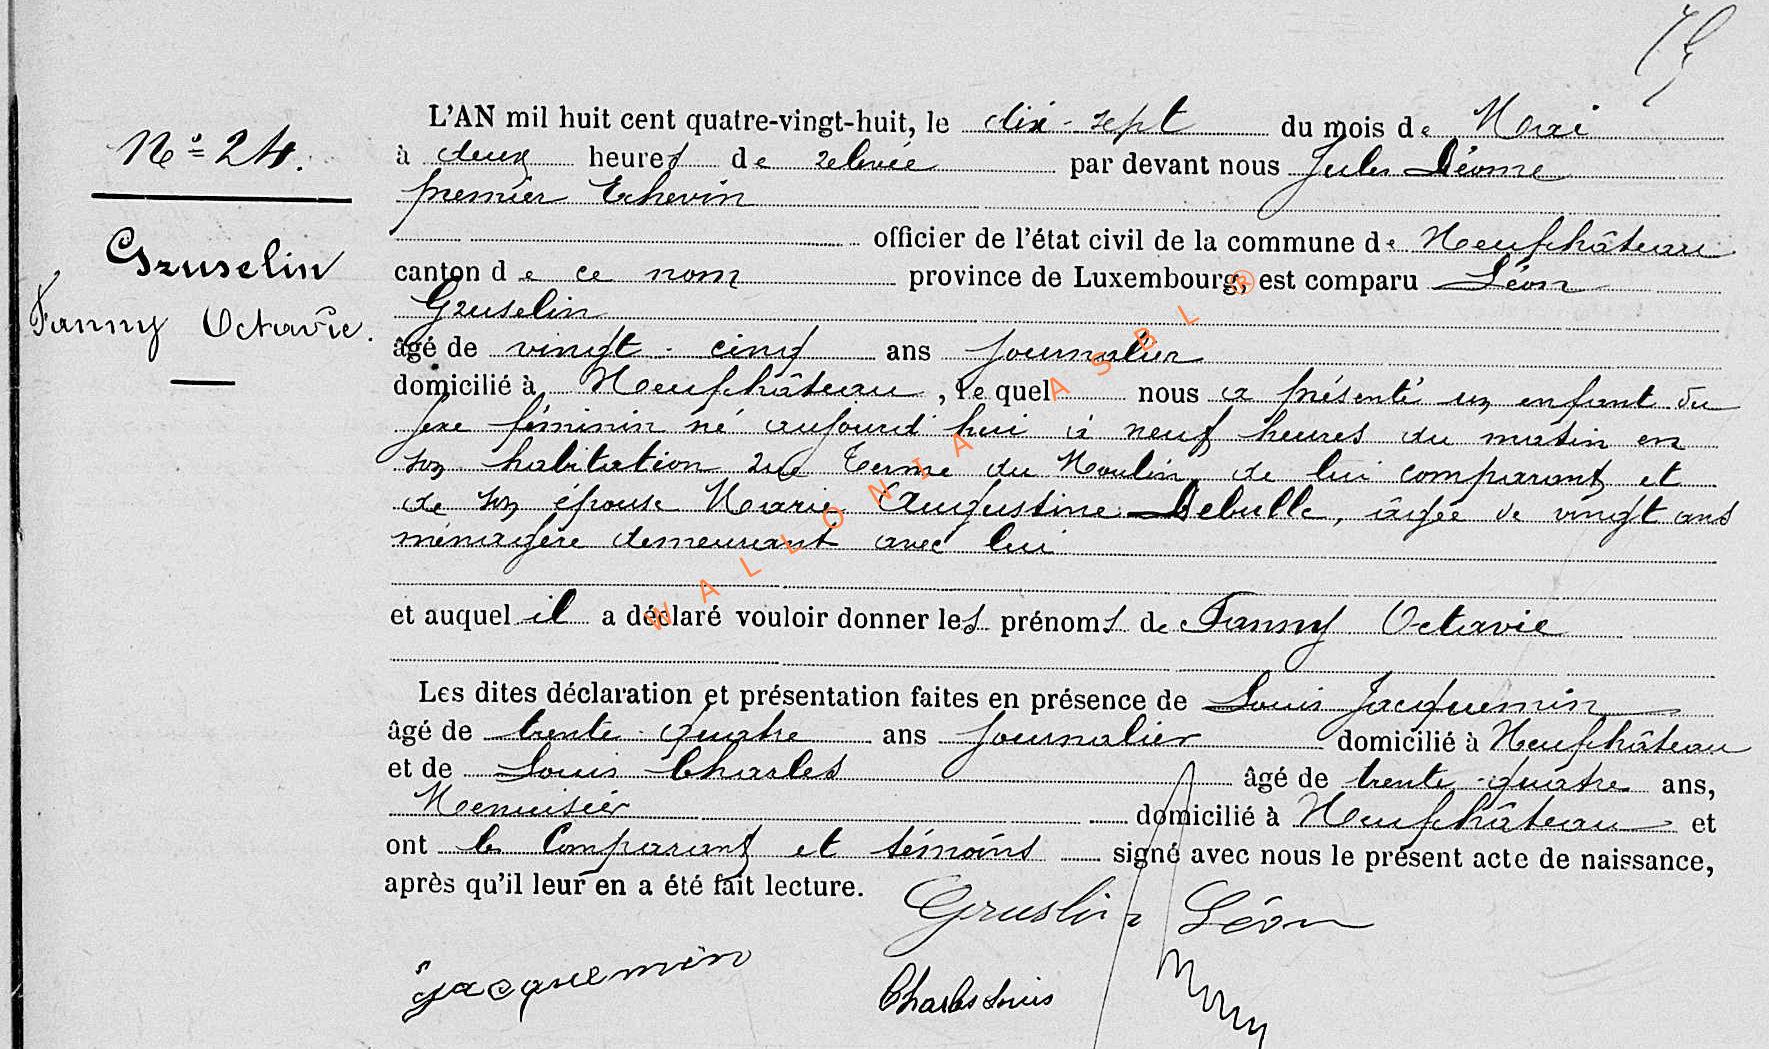 N° = 24.
Gruselin
Fanny Octavie.
L'AN mil huit cent quatre-vingt-huit, le dix-sept du mois de Mai
à deux heures de relevée par devant nous Jules Déome
premier Echevin
officier de l'état civil de la commune de Neufchâteau
canton de ce nom province de Luxembourg, est comparu Léon
Gruselin
âgé de vingt-cinq ans journalier
domicilié à Neufchâteau, lequel nous a présenté un enfant du
sexe féminin né aujourd'hui à neuf heures du matin en
son habitation rue Terme du Moulin, de lui comparant et
de son épouse Marie Augustine Debulle, âgée de vingt ans
ménagère demeurant avec lui
et auquel il a déclaré vouloir donner les prénoms de Fanny Octavie
Les dites déclaration et présentation faites en présence de Louis Jacquemin
âgé de trente-quatre ans journalier domicilié à Neufchâteau
et de Louis Charles âgé de trente-quatre ans,
Menuisier domicilié à Neufchâteau et
ont les Comparant et témoins signé avec nous le présent acte de naissance,
après qu'il leur en a été fait lecture.
Gruslin Léon
Jacquemin
Charles Louis
WALLONIA ASBL ®